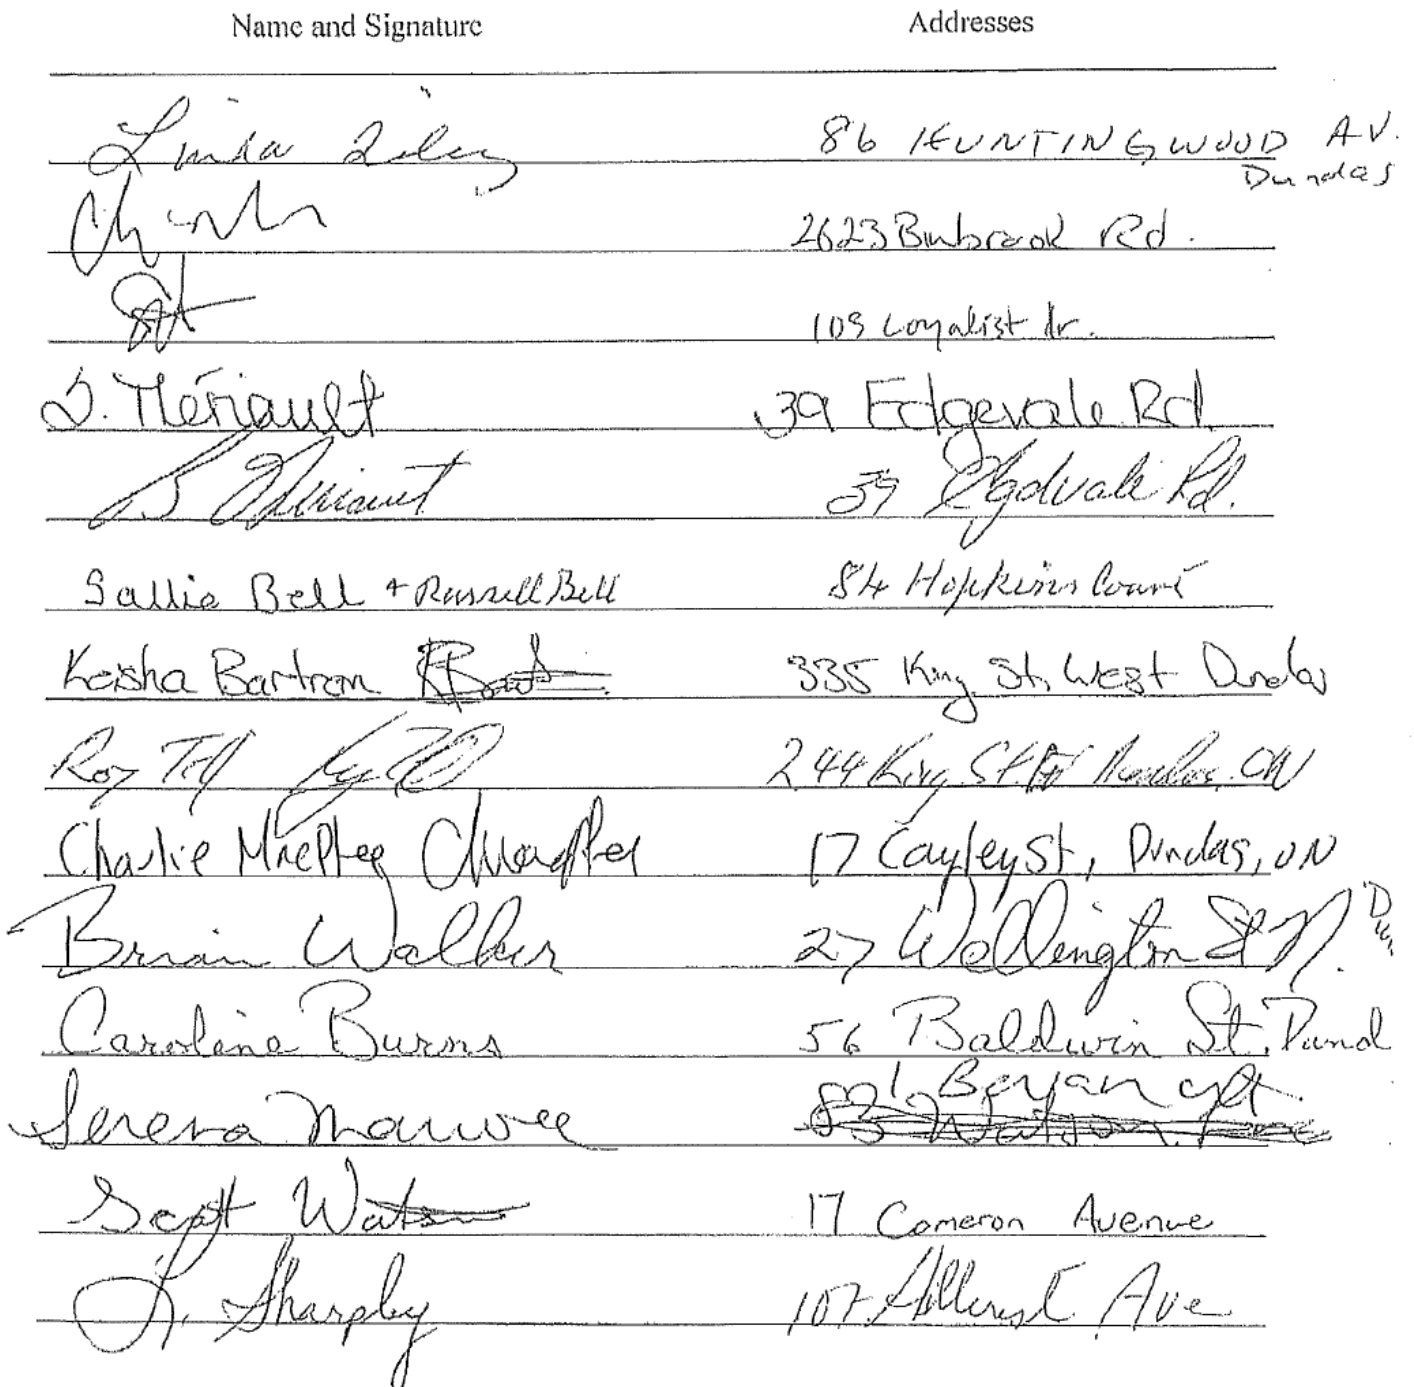 Name and Signature Addresses
Linda 86 HUNTINGWOOD AV.
Dundas
2623 Binbrook Rd.
109 Loyalist dr.
S. Thériault 39 Edgevale Rd.
S Theriault 39 Rd.
Sallie Bell + Russell Bell 84 Hopkins Court
Keisha Bartram 335 King St. West Dundas
Roy 244 King St W Dundas, ON
Charlie MacPhee CMacPhee 17 Cayley St, Dundas, ON
Brian Walker 27 Wellington St N. Dun
Caroline Burns 56 Baldwin St. Dund
Serena
Scott Watson 17 Cameron Avenue
L. Sharpley 107 Hillcrest Ave